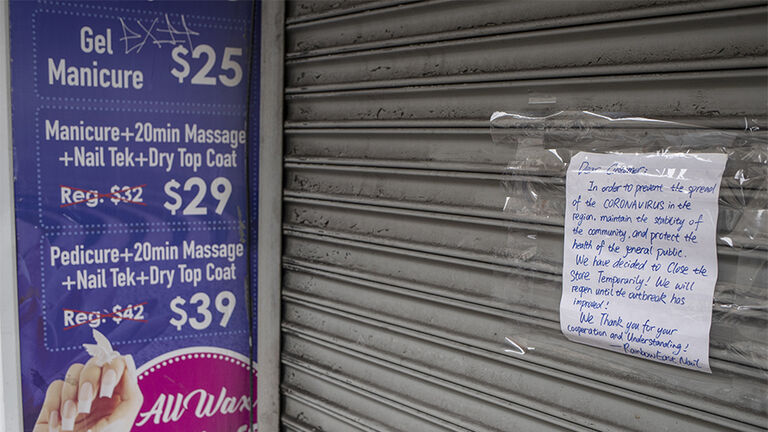 Gel
Manicure
$25
Manicure+20min Massage
+Nail Tek+Dry Top Coat
Reg. $32 $29
Pedicure+20min Massage
+Nail Tek+Dry Top Coat
Reg. $42 $39
All Wax
Dear Customer:
In order to prevent the spread
of the CORONAVIRUS in the
region. maintain the stability of
the community, and protect the
health of the general public.
We have decided to Close the
Store Temporarily! We will
reopen until the outbreak has
improved!
We Thank you for your
cooperation and Understanding!
— Rainbow East Nail